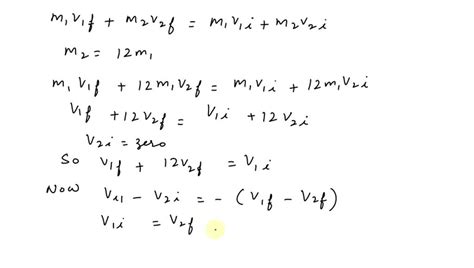 m₁V₁f + m₂V₂f = m₁V₁i + m₂V₂i
m₂ = 12m₁
m₁V₁f + 12m₁V₂f = m₁V₁i + 12m₁V₂i
V₁f + 12V₂f = V₁i + 12V₂i
V₂i = zero
So V₁f + 12V₂f = V₁i
Now V₁i - V₂i = - (V₁f - V₂f)
V₁i = V₂f